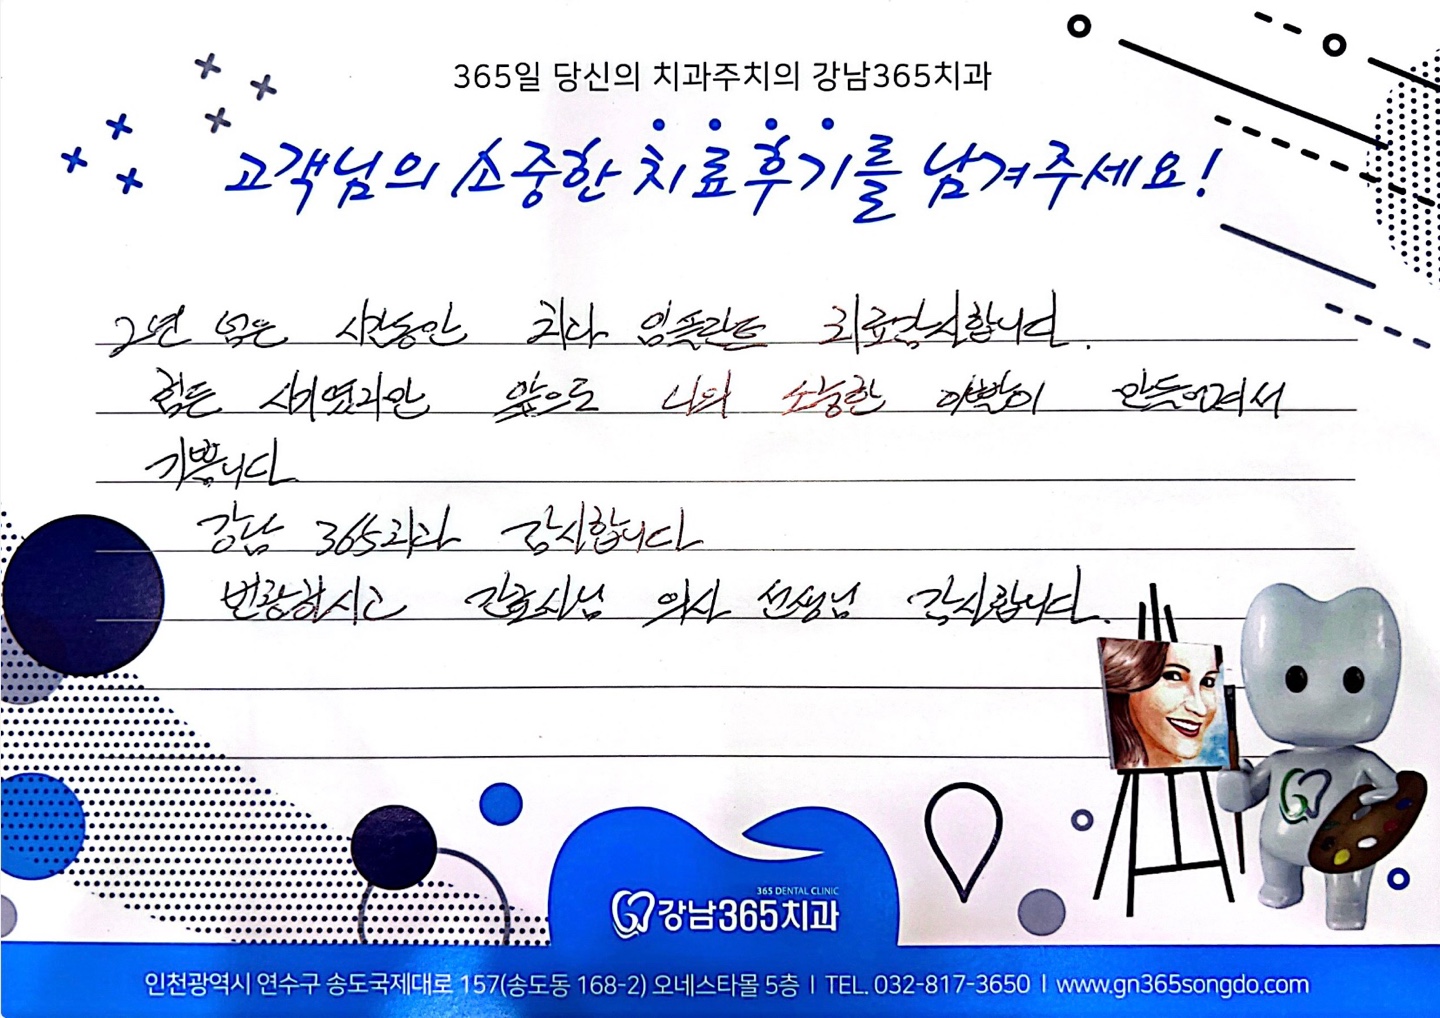 365일 당신의 치과주치의 강남365치과
고객님의 소중한 치료후기를 남겨주세요!
2년 넘은 시간동안 치과 임플란트 치료감사합니다.
힘든 시기였지만 앞으로 나의 소중한 이빨이 만들어져서
기쁩니다
강남 365치과 감사합니다
간호사님 의사 선생님 감사합니다.
365 DENTAL CLINIC
강남365치과
인천광역시 연수구 송도국제대로 157(송도동 168-2) 오네스타몰 5층 | TEL. 032-817-3650 | www.gn365songdo.com